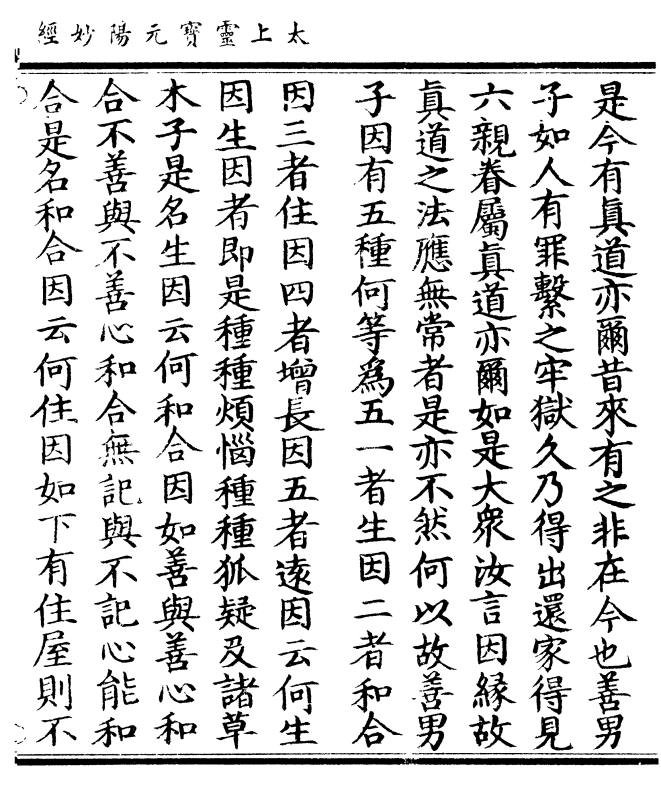 太上靈寶元陽妙經
是今有眞道亦爾昔來有之非在今也善男
子如人有罪繫之牢獄久乃得出還家得見
六親眷屬眞道亦爾如是大衆汝言因縁故
眞道之法應無常者是亦不然何以故善男
子因有五種何等爲五一者生因二者和合
因三者住因四者增長因五者遠因云何生
因生因者即是種種煩惱種種狐疑及諸草
木子是名生因云何和合因如善與善心和
合不善與不善心和合無記與不記心能和
合是名和合因云何住因如下有住屋則不